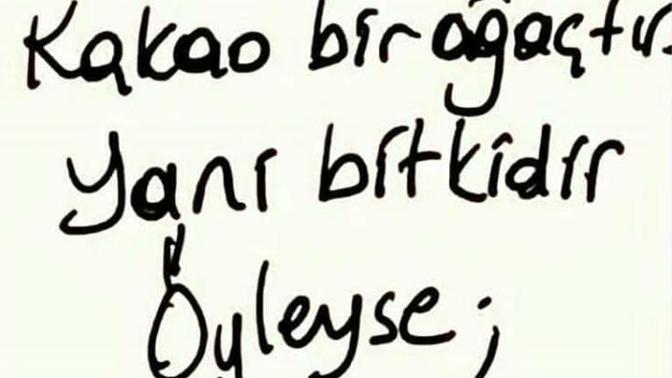 Kakao bir ağaçtır
Yani bitkidir
Öyleyse;